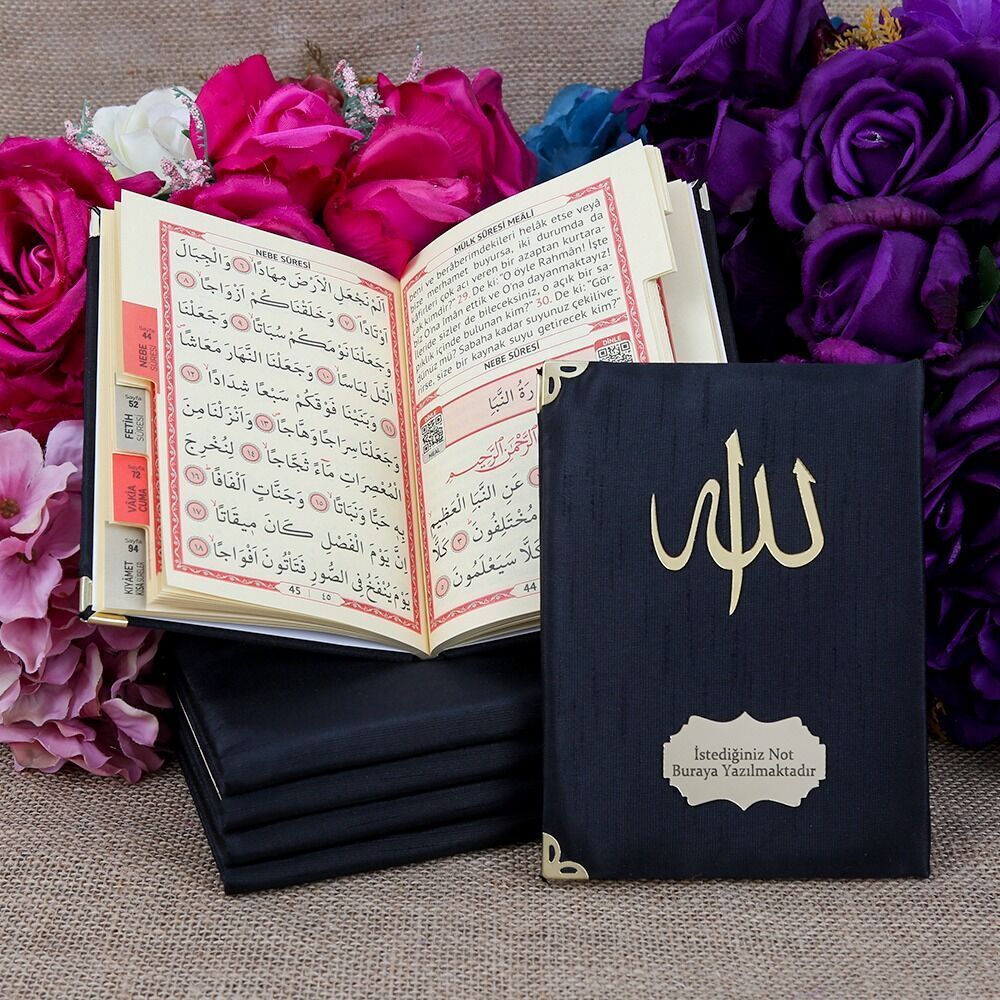 NEBE SÛRESİ
اَلَمْ نَجْعَلِ الْاَرْضَ مِهَادًاۙ ﴿٦﴾ وَالْجِبَالَ
اَوْتَادًاۖ ﴿٧﴾ وَخَلَقْنَاكُمْ اَزْوَاجًاۙ ﴿٨﴾
وَجَعَلْنَا نَوْمَكُمْ سُبَاتًاۙ ﴿٩﴾ وَجَعَلْنَا
الَّيْلَ لِبَاسًاۙ ﴿١٠﴾ وَجَعَلْنَا النَّهَارَ مَعَاشًاۖ
﴿١١﴾ وَبَنَيْنَا فَوْقَكُمْ سَبْعًا شِدَادًاۙ ﴿١٢﴾
وَجَعَلْنَا سِرَاجًا وَهَّاجًاۖ ﴿١٣﴾ وَاَنْزَلْنَا مِنَ
الْمُعْصِرَاتِ مَٓاءً ثَجَّاجًاۙ ﴿١٤﴾ لِنُخْرِجَ
بِه۪ حَبًّا وَنَبَاتًاۙ ﴿١٥﴾ وَجَنَّاتٍ اَلْفَافًاۜ ﴿١٦﴾
اِنَّ يَوْمَ الْفَصْلِ كَانَ م۪يقَاتًاۙ ﴿١٧﴾
يَوْمَ يُنْفَخُ فِي الصُّورِ فَتَأْتُونَ اَفْوَاجًاۙ ﴿١٨﴾
45 ٤٥
Sayfa
44
NEBE
SÛRESİ
Sayfa
52
FETİH
SÛRESİ
Sayfa
72
VÂKİA
CUMA
Sayfa
94
KIYÂMET
KISA SÛRELER
MÜLK SÛRESİ MEÂLİ
beni ve berâberimdekileri helâk etse veyâ
bize merhamet buyursa, iki durumda da
kâfirleri çok acı veren bir azaptan kurtara-
cak kimdir?" 29. De ki: "O öyle Rahmân! İşte
biz O'na îmân ettik ve O'na dayanmaktayız!
İleride sizler de bileceksiniz, o açık bir sa-
pıklık içinde bulunan kim?" 30. De ki: "Gör-
dünüz mü? Sabaha kadar suyunuz çekiliver-
irse, size bir kaynak suyu getirecek kim?"
NEBE SÛRESİ
DİNLE
رَةُ النَّبَأِ
DİNLE
MEAL
الرَّحْمٰنِ الرَّح۪يمِ
عَنِ النَّبَأِ الْعَظ۪يمِ
مُخْتَلِفُونَ ﴿٣﴾ كَلَّا
كَلَّا سَيَعْلَمُونَ ﴿٥﴾
44
الله
İstediğiniz Not
Buraya Yazılmaktadır